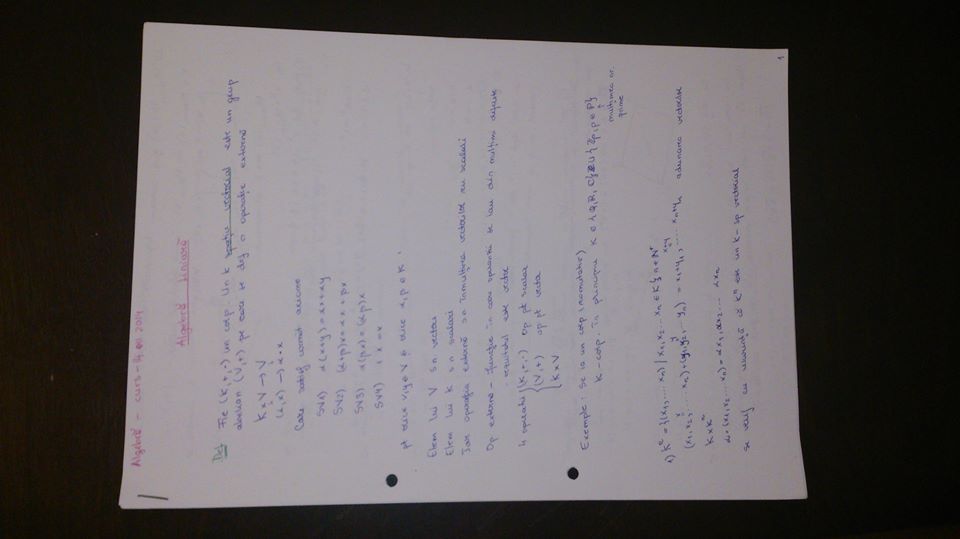 Algebră - curs - 2014
Algebră liniară
Def Fie (K,+,·) un corp. Un K spațiu vectorial este un grup
abelian (V,+) pe care se def o operație externă
K x V → V
(α,x) → α·x
Care satisf urmat axiome
SV1) α(x+y)=αx+αy
SV2) (α+β)x=αx+βx
SV3) α(βx)=(αβ)x
SV4) 1·x=x
pt orice x,y∈V și orice α,β∈K
Elem lui V s.n vectori
Elem lui K s.n scalari
Iar operația externă s.n înmulțirea vectorilor cu scalari
Op externă - funcție în care operanzii se iau din mulțimi diferite
- rezultatul este vector
4 operații { (K,+,·) op pt scalar
(V,+) op pt vector
K x V
Exemple: Se ia un corp (comutativ)
K - corp. În principiu K∈{Q,R,C}∪{Zp, p∈P}
mulțimea nr.
prime
1) Kⁿ={(x1,...xn)/x1,x2...xn∈K} n∈N*
x y x+y
(x1,x2,...xn)+(y1,y2,...yn) = x1+y1,...xn+yn adunarea vectorilor
K x Kⁿ
α·(x1,x2...xn)=αx1,αx2...αxn
Se verif cu ușurință că Kⁿ este un K-sp vectorial
1